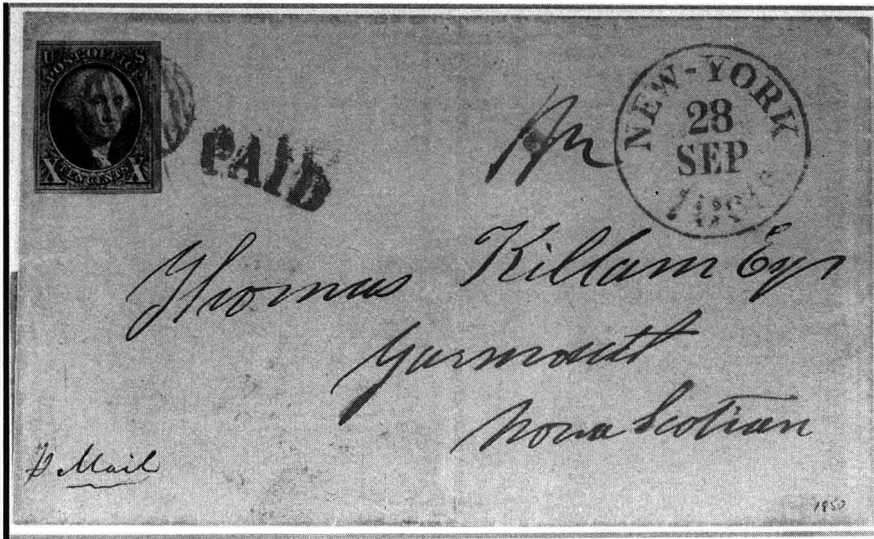 U S
POST OFFICE
X TEN CENTS X
PAID
NEW-YORK
28
SEP
10cts
Thomas Killam Esqr
Yarmouth
Nova Scotia
P Mail
1850